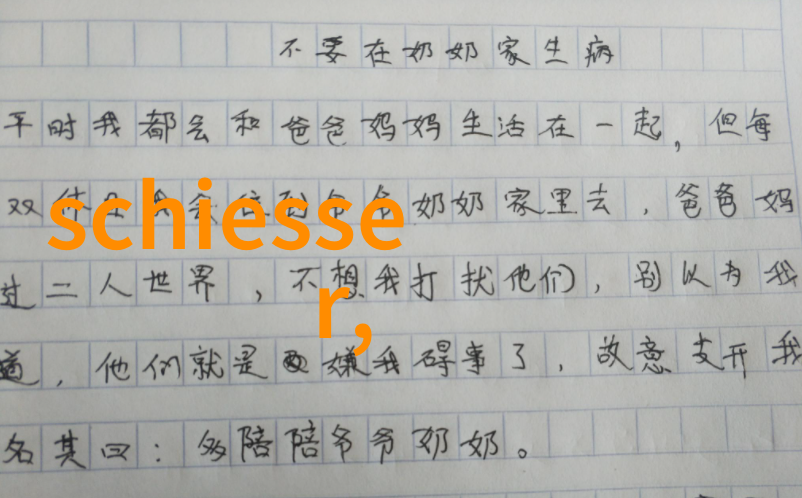 不要在奶奶家生病
平时我都会和爸爸妈妈生活在一起，但每
双休 会 奶奶家里去，爸爸妈
schiesse
过二人世界，不想我打扰他们，别以为我
r,
道，他们就是嫌我碍事了，故意支开我
名其曰：多陪陪爷爷奶奶。